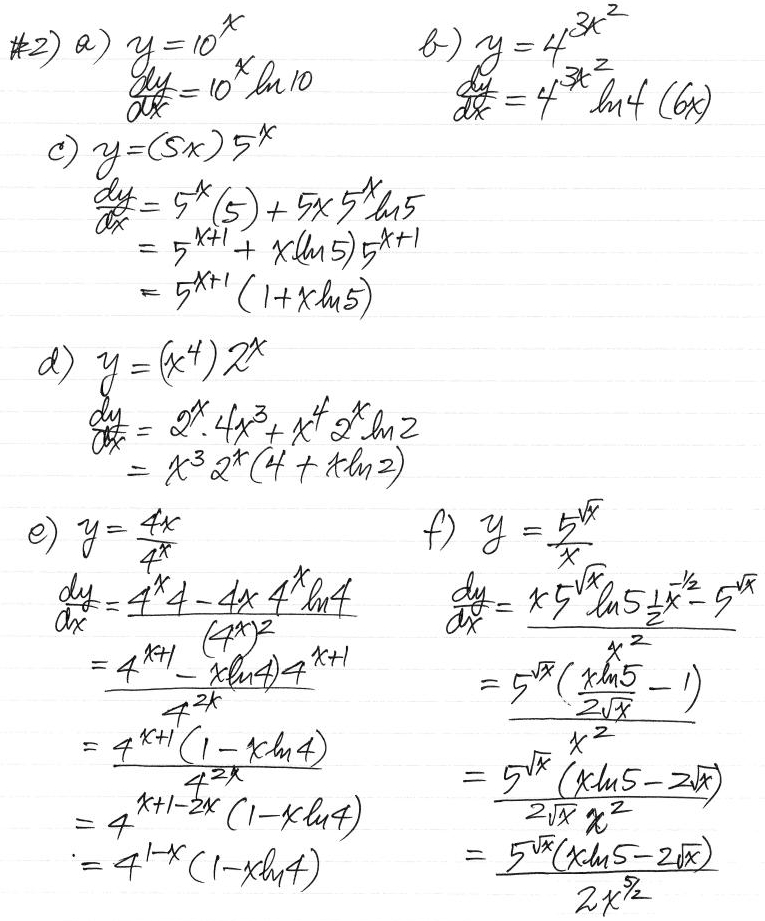 #2) a) y = 10^x
dy/dx = 10^x ln 10
b) y = 4^(3x^2)
dy/dx = 4^(3x^2) ln 4 (6x)
c) y = (5x) 5^x
dy/dx = 5^x (5) + 5x 5^x ln 5
= 5^(x+1) + x(ln 5) 5^(x+1)
= 5^(x+1) (1 + x ln 5)
d) y = (x^4) 2^x
dy/dx = 2^x · 4x^3 + x^4 2^x ln 2
= x^3 2^x (4 + x ln 2)
e) y = 4x / 4^x
dy/dx = (4^x 4 - 4x 4^x ln 4) / (4^x)^2
= (4^(x+1) - x(ln 4) 4^(x+1)) / 4^(2x)
= 4^(x+1) (1 - x ln 4) / 4^(2x)
= 4^(x+1-2x) (1 - x ln 4)
= 4^(1-x) (1 - x ln 4)
f) y = 5^(√x) / x
dy/dx = (x 5^(√x) ln 5 1/2 x^(-1/2) - 5^(√x)) / x^2
= 5^(√x) (x ln 5 / 2√x - 1) / x^2
= 5^(√x) (x ln 5 - 2√x) / 2√x x^2
= 5^(√x) (x ln 5 - 2√x) / 2x^(5/2)